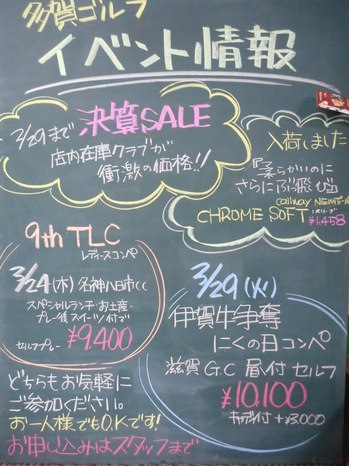 多賀ゴルフ
イベント情報
3/29まで 決算SALE
店内在庫クラブが
衝激の価格!!
入荷しました
『柔らかいのに
さらにぶっ飛び』
callway NEWボール
CHROME SOFT
¥1,458
9th TLC
レディースコンペ
3/24(木) 名神八日市CC
スペシャルランチ・お土産・
プレー後スイーツ付で
セルフプレー ¥9,400
3/29(火)
伊賀牛争奪
にくの日コンペ
滋賀G.C 昼付 セルフ
¥10,100
キャディ付 +¥3,000
どちらもお気軽に
ご参加ください。
お一人様でもO.Kです!
お申し込みはスタッフまで